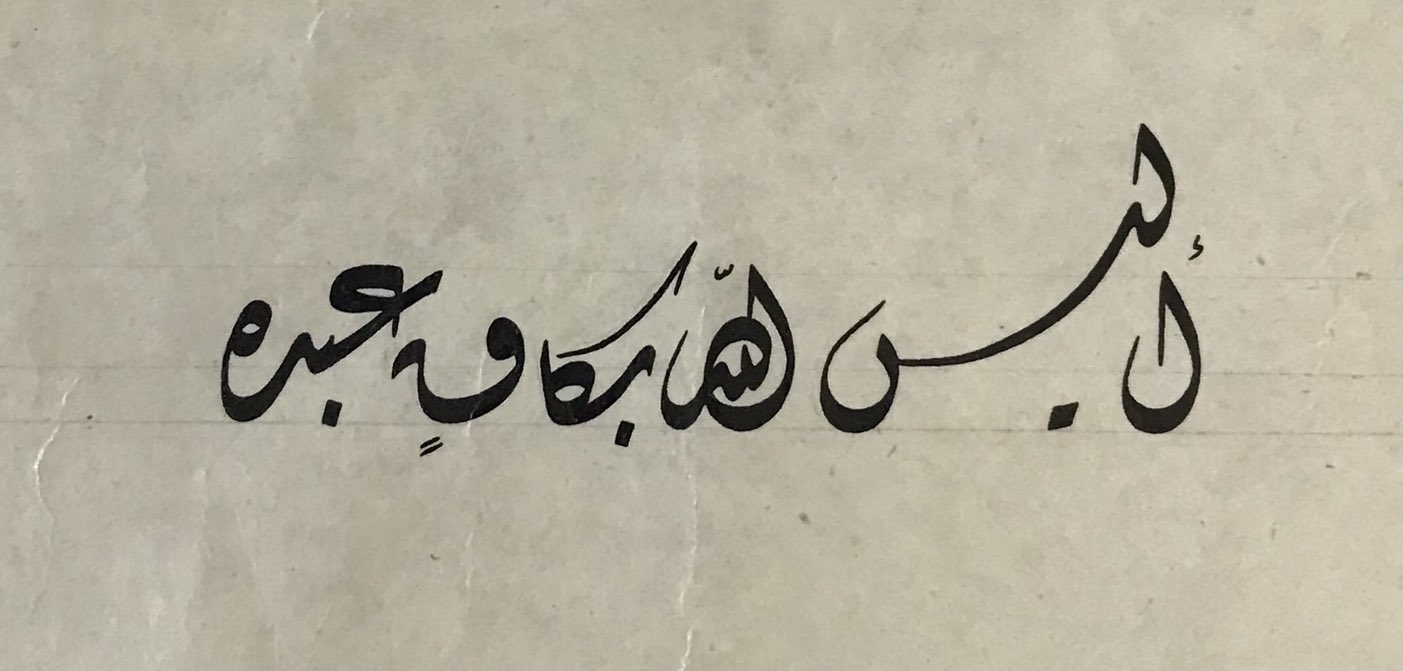 أليس الله بكافٍ عبده